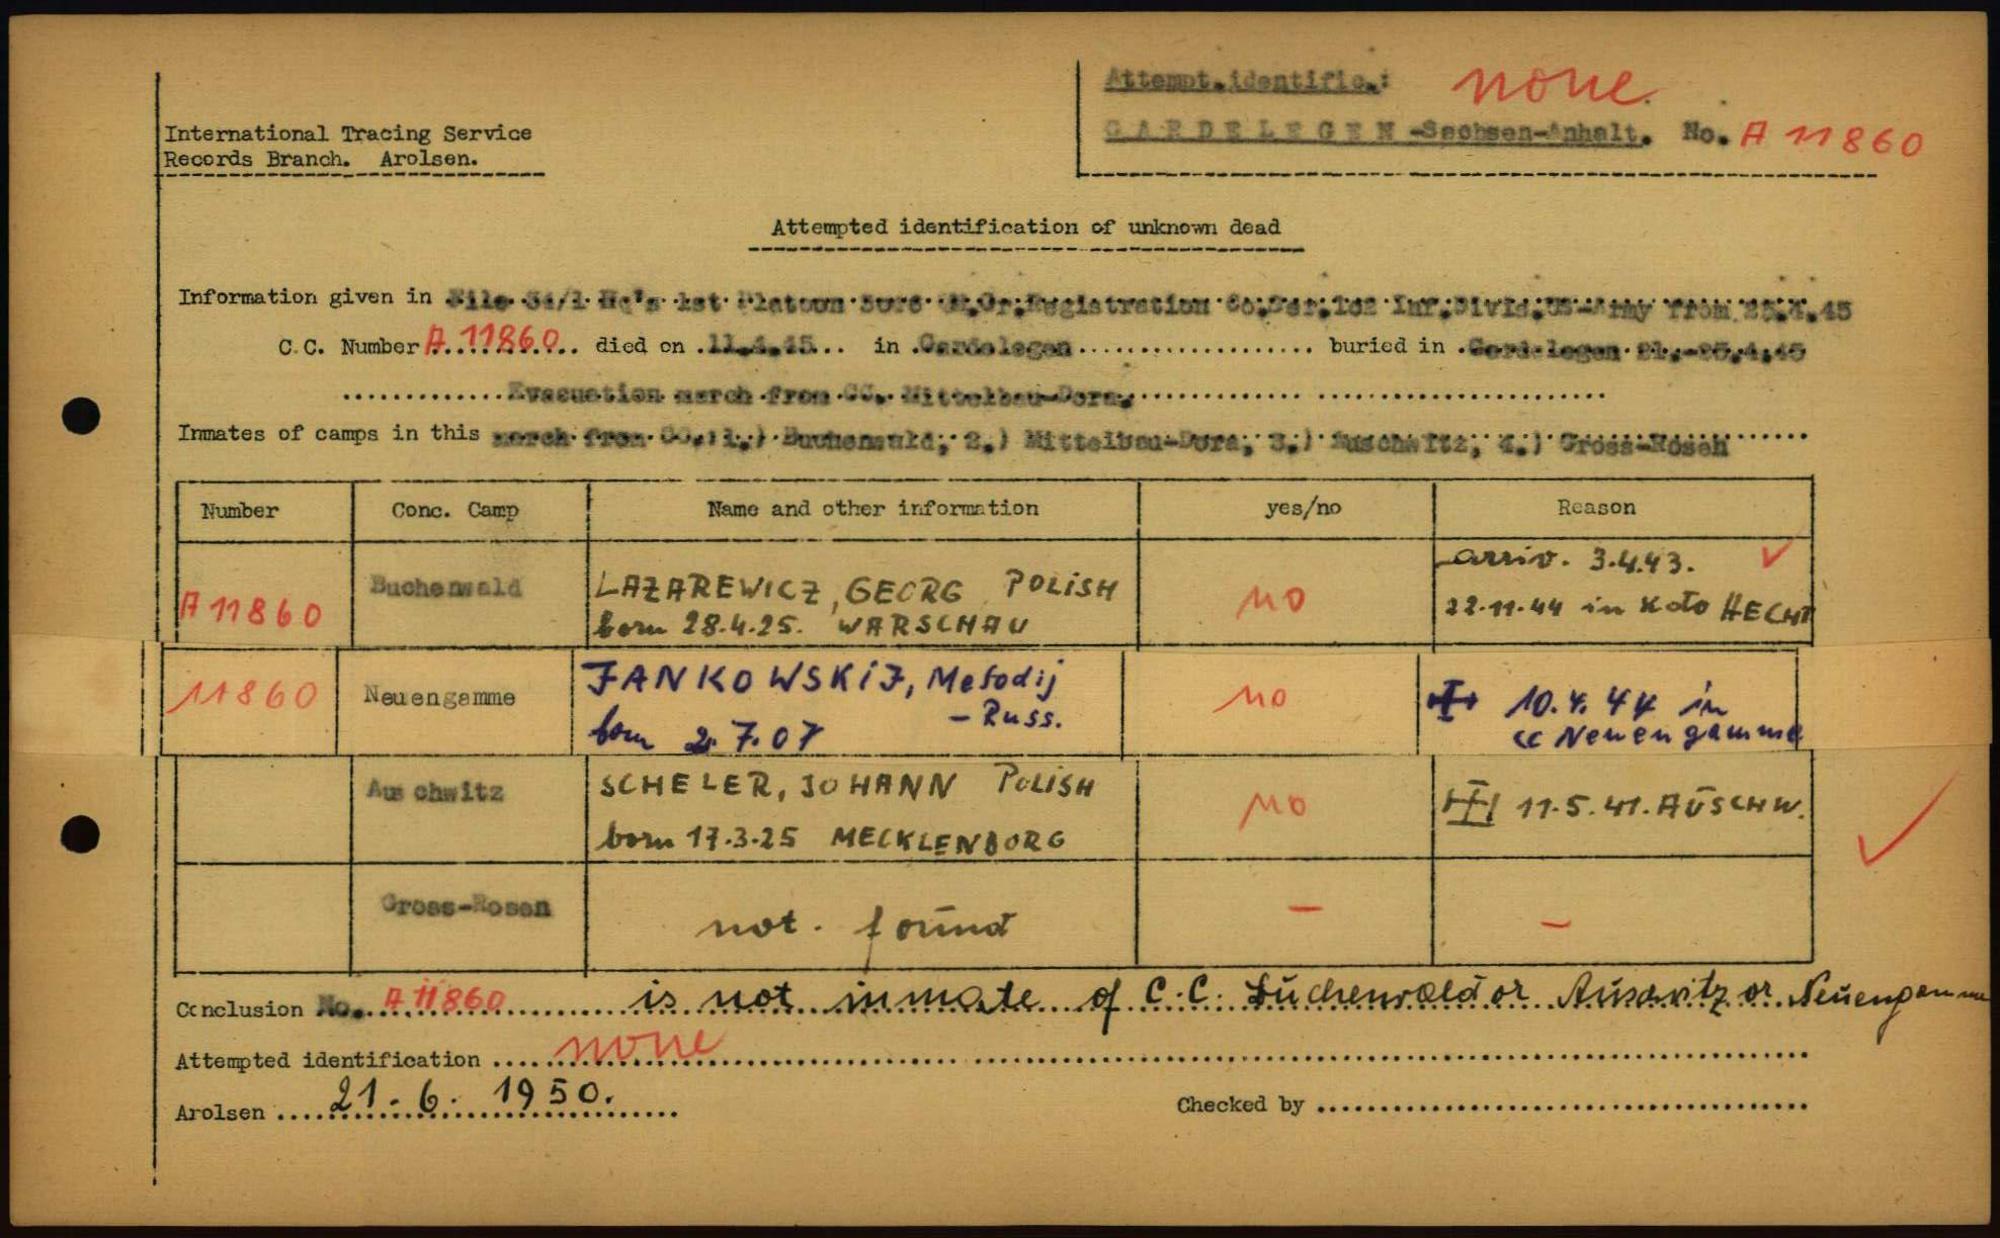 Attempt.identific.: none.
International Tracing Service
GARDELEGEN -Sachsen-Anhalt. No. A 11860
Records Branch. Arolsen.
Attempted identification of unknown dead
Information given in File 34/1 Hq's 1st Platoon Registration Inf.Divis.US-Army from 25.4.45
C.C. Number A 11860 died on in Gardelegen buried in Gardelegen 21.-25.4.45
Evacuation march from CC. Mittelbau-Dora.
Inmates of camps in this march from CC.: 1.) Buchenwald, 2.) Mittelbau-Dora, 3.) Auschwitz, 4.) Gross-Rosen
Number Conc. Camp Name and other information yes/no Reason
A 11860 Buchenwald LAZAREWICZ, GEORG POLISH no arriv. 3.4.43. ✓
born 28.4.25. WARSCHAU 22.11.44 in Kdo HECHT
11860 Neuengamme JANKOWSKIJ, Mefodij no 10.4.44 in
born 2.7.07 - Russ. cc Neuengamme
Auschwitz SCHELER, JOHANN POLISH no 11.5.41. AUSCHW.
born 17.3.25 MECKLENBORG
Gross-Rosen not. found - -
Conclusion No. A 11860 is not inmate of C.C. Buchenwald or Auswitz or Neuengamme
Attempted identification none
Arolsen 21.6.1950.
Checked by